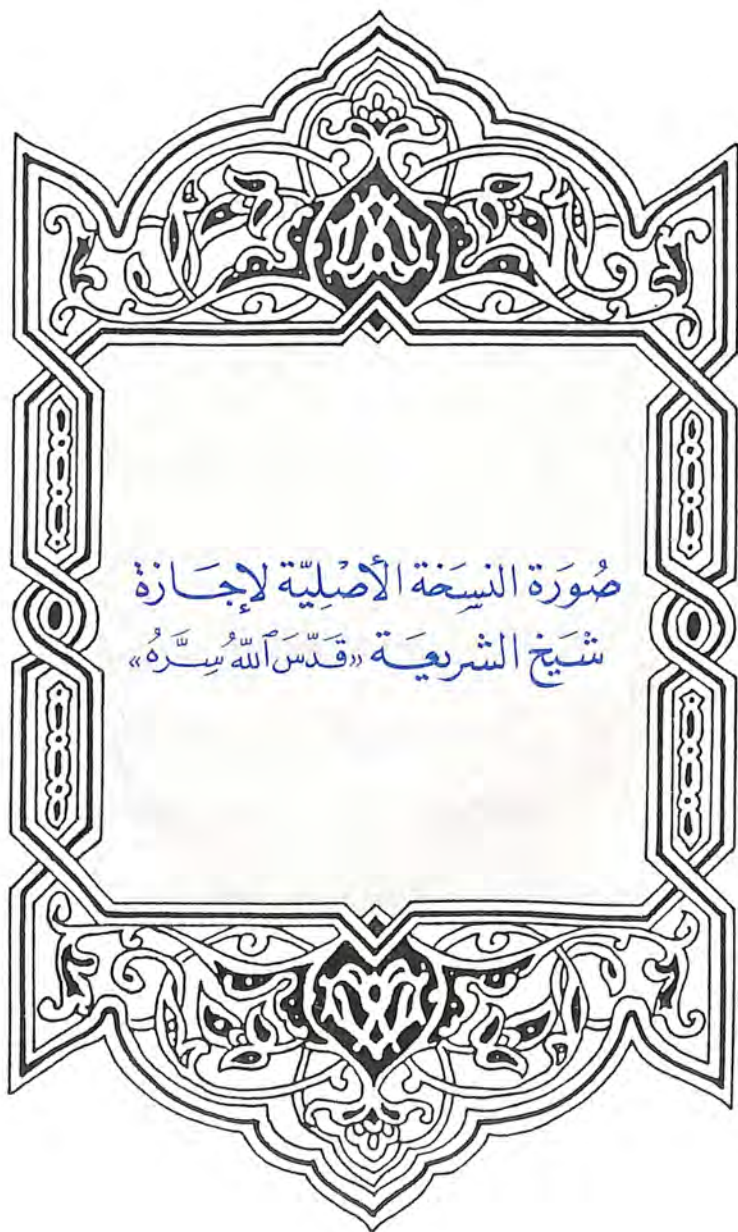 صُورَة النسِخَة الأصْلِيَّة لإجَازة
شَيخ الشريعَة «قَدّسَ ٱللّهُ سِرَّهُ»